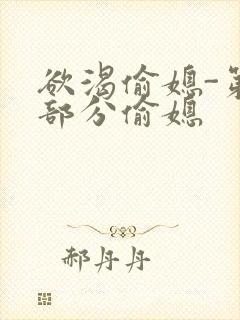 欲渴偷媳-第
部分偷媳
郝丹丹